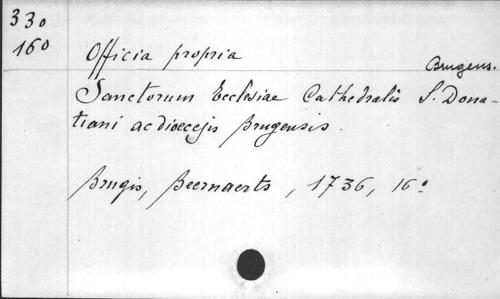 330
160
Officia propria
Brugens.
Sanctorum Ecclesiae Cathedralis S. Dona-
tiani ac dioecejis Brugensis.
Brugis, Beernaerts, 1736, 16°